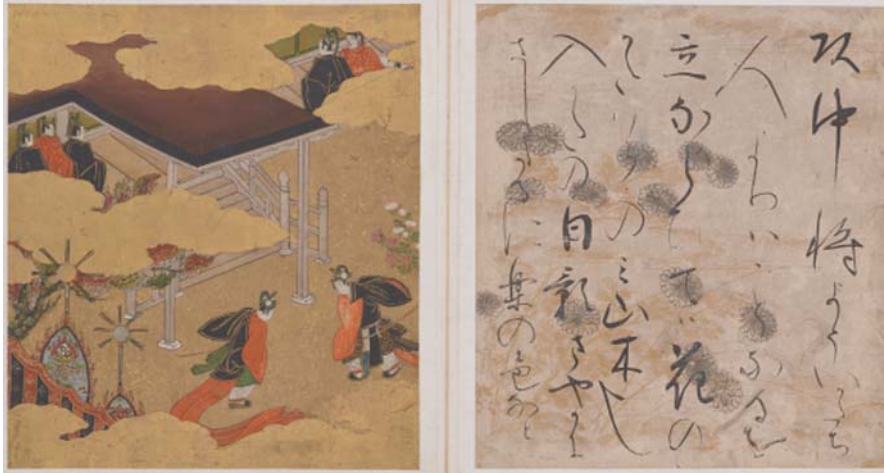 頭中将よういかたち
人にはことなる
立ならひては花の
かたはらのミ山木也
入かたの日影さやかに
さしたるに楽の